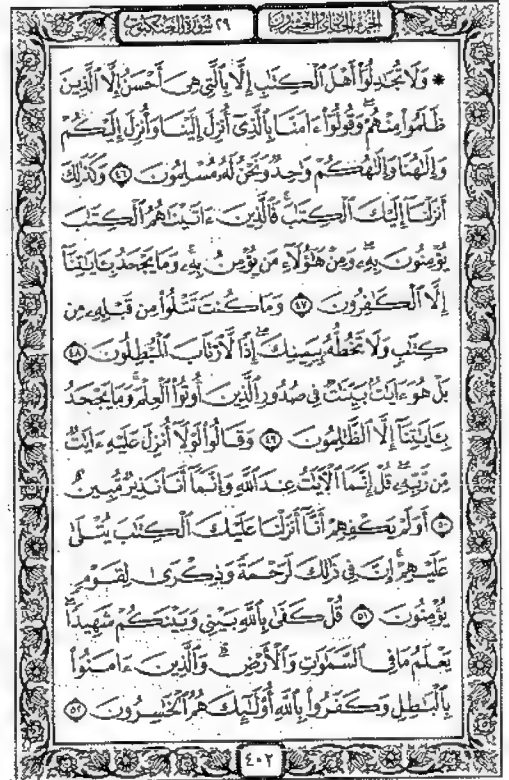 ٢٩ سورة العنكبوت
الجزء الحادي والعشرون
* وَلَا تُجَٰدِلُوٓا۟ أَهْلَ ٱلْكِتَٰبِ إِلَّا بِٱلَّتِى هِىَ أَحْسَنُ إِلَّا ٱلَّذِينَ
ظَلَمُوا۟ مِنْهُمْ ۖ وَقُولُوٓا۟ ءَامَنَّا بِٱلَّذِىٓ أُنزِلَ إِلَيْنَا وَأُنزِلَ إِلَيْكُمْ
وَإِلَٰهُنَا وَإِلَٰهُكُمْ وَٰحِدٌ وَنَحْنُ لَهُۥ مُسْلِمُونَ ٤٦ وَكَذَٰلِكَ
أَنزَلْنَآ إِلَيْكَ ٱلْكِتَٰبَ ۚ فَٱلَّذِينَ ءَاتَيْنَٰهُمُ ٱلْكِتَٰبَ
يُؤْمِنُونَ بِهِۦ ۖ وَمِنْ هَٰٓؤُلَآءِ مَن يُؤْمِنُ بِهِۦ ۚ وَمَا يَجْحَدُ بِـَٔايَٰتِنَآ
إِلَّا ٱلْكَٰفِرُونَ ٤٧ وَمَا كُنتَ تَتْلُوا۟ مِن قَبْلِهِۦ مِن
كِتَٰبٍ وَلَا تَخُطُّهُۥ بِيَمِينِكَ ۖ إِذًا لَّٱرْتَابَ ٱلْمُبْطِلُونَ ٤٨
بَلْ هُوَ ءَايَٰتٌۢ بَيِّنَٰتٌ فِى صُدُورِ ٱلَّذِينَ أُوتُوا۟ ٱلْعِلْمَ ۚ وَمَا يَجْحَدُ
بِـَٔايَٰتِنَآ إِلَّا ٱلظَّٰلِمُونَ ٤٩ وَقَالُوا۟ لَوْلَآ أُنزِلَ عَلَيْهِ ءَايَٰتٌ
مِّن رَّبِّهِۦ ۖ قُلْ إِنَّمَا ٱلْءَايَٰتُ عِندَ ٱللَّهِ وَإِنَّمَآ أَنَا۠ نَذِيرٌ مُّبِينٌ
٥٠ أَوَلَمْ يَكْفِهِمْ أَنَّآ أَنزَلْنَا عَلَيْكَ ٱلْكِتَٰبَ يُتْلَىٰ
عَلَيْهِمْ ۚ إِنَّ فِى ذَٰلِكَ لَرَحْمَةً وَذِكْرَىٰ لِقَوْمٍ
يُؤْمِنُونَ ٥١ قُلْ كَفَىٰ بِٱللَّهِ بَيْنِى وَبَيْنَكُمْ شَهِيدًا ۖ
يَعْلَمُ مَا فِى ٱلسَّمَٰوَٰتِ وَٱلْأَرْضِ ۗ وَٱلَّذِينَ ءَامَنُوا۟
بِٱلْبَٰطِلِ وَكَفَرُوا۟ بِٱللَّهِ أُو۟لَٰٓئِكَ هُمُ ٱلْخَٰسِرُونَ ٥٢
٤٠٢